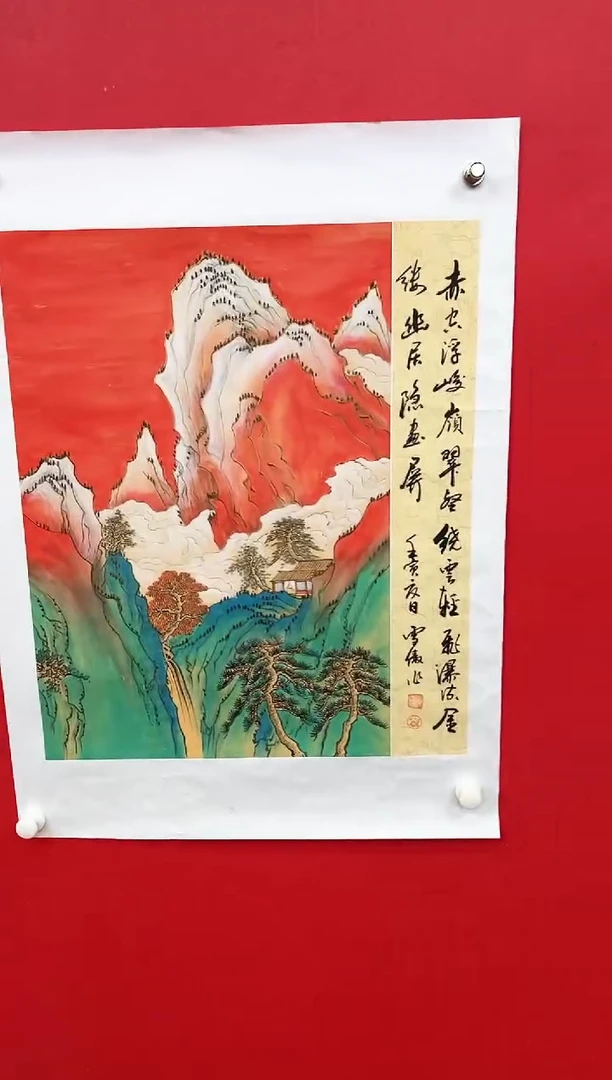 赤空浮峻嶺翠壑繞雲輕飛瀑流金
縷幽居隐畫屏
壬寅夏日雪傲作